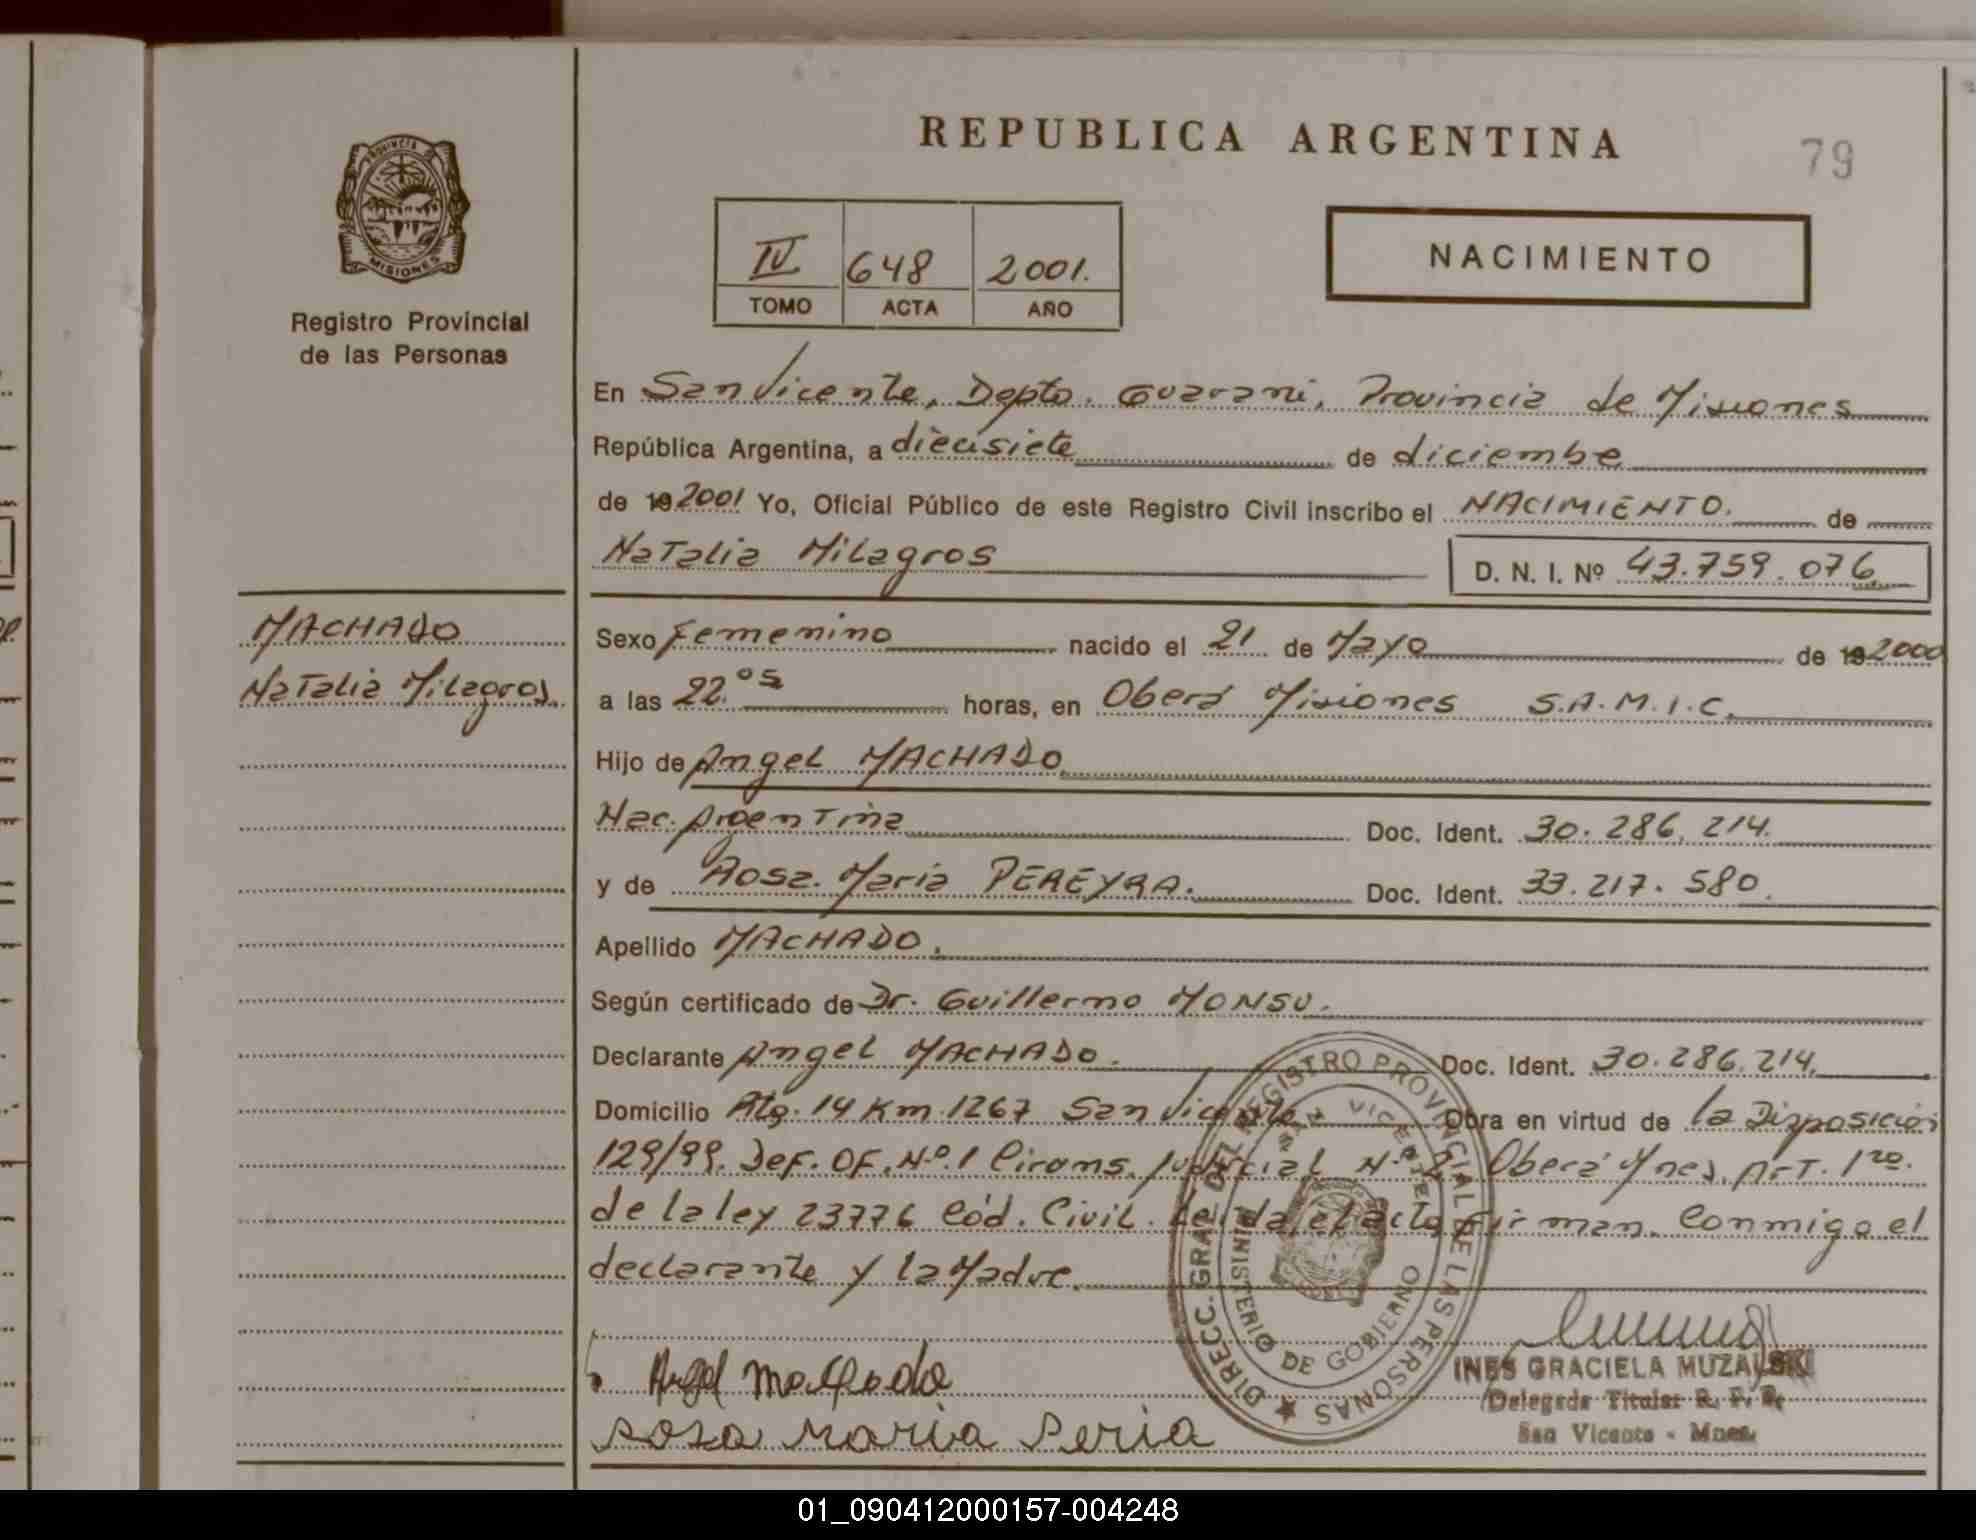 REPUBLICA ARGENTINA
79
PROVINCIA
MISIONES
Registro Provincial
de las Personas
IV 648 2001.
TOMO ACTA AÑO
NACIMIENTO
En San Vicente, Depto. Guaraní, Provincia de Misiones
República Argentina, a diecisiete de diciembre
de 19 2001 Yo, Oficial Público de este Registro Civil inscribo el NACIMIENTO. de
Natalia Milagros D. N. I. Nº 43.759.076
MACHADO
Natalia Milagros.
Sexo Femenino nacido el 21 de Mayo de 19 2000
a las 22.05 horas, en Oberá Misiones S.A.M.I.C.
Hijo de Angel MACHADO
Nac. Argentina Doc. Ident. 30.286.214.
y de Rosa Maria PEREYRA. Doc. Ident. 33.217.580.
Apellido MACHADO.
Según certificado de Dr. Guillermo MONSU.
Declarante Angel MACHADO. Doc. Ident. 30.286.214.
Domicilio Rta. 14 Km. 1267 San Vicente Obra en virtud de la Disposición
129/99. Def. OF. Nº.1 Circuns. Judicial Nº 2 Oberá Mnes. Art. 1ro.
de la ley 23776 Cód. Civil. Leída el acta firman. Conmigo el
declarante y la Madre.
DIRECC. GRAL. DEL REGISTRO PROVINCIAL DE LAS PERSONAS
SAN VICENTE
MINISTERIO DE GOBIERNO
Angel Machado
INES GRACIELA MUZALSKI
Delegada Titular R. P. P.
San Vicente - Mnes.
rosa maria Peria
01_090412000157-004248